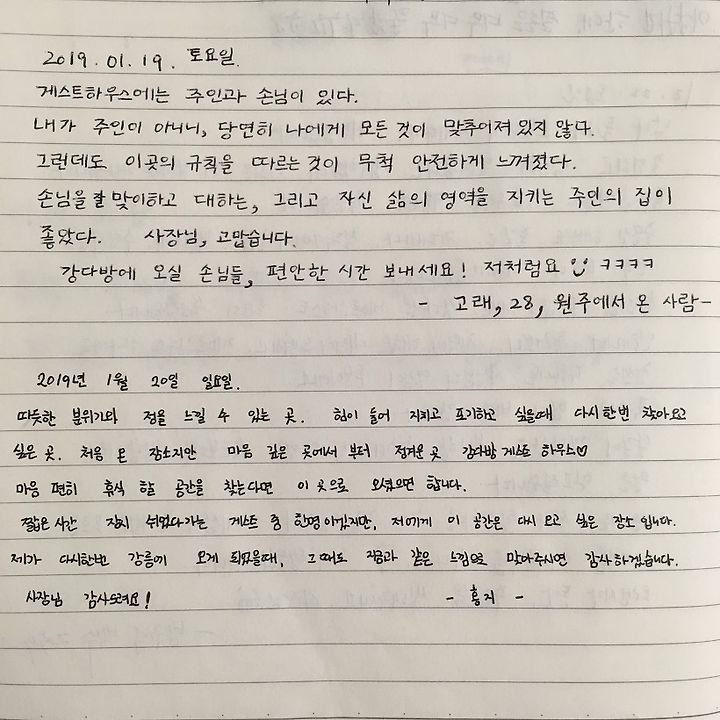 2019. 01. 19. 토요일.
게스트하우스에는 주인과 손님이 있다.
내가 주인이 아니니, 당연히 나에게 모든 것이 맞추어져 있지 않다.
그런데도 이곳의 규칙을 따르는 것이 무척 안전하게 느껴졌다.
손님을 잘 맞이하고 대하는, 그리고 자신 삶의 영역을 지키는 주인의 집이
좋았다. 사장님, 고맙습니다.
강다방에 오실 손님들, 편안한 시간 보내세요! 저처럼요 ㅋㅋㅋㅋ
- 고래, 28, 원주에서 온 사람-
2019년 1월 20일 일요일.
따듯한 분위기와 정을 느낄 수 있는 곳. 힘이 들어 지치고 포기하고 싶을때 다시한번 찾아오고
싶은 곳. 처음 온 장소지만 마음 깊은 곳에서 부터 정겨운 곳 강다방 게스트 하우스♡
마음 편히 휴식 할 공간을 찾는다면 이 곳으로 오셨으면 합니다.
짧은시간 잠시 쉬었다가는 게스트 중 한명이겠지만, 저에게 이 공간은 다시 오고 싶은 장소 입니다.
제가 다시한번 강릉에 오게 되었을때, 그때도 지금과 같은 느낌으로 맞아주시면 감사하겠습니다.
사장님 감사드려요! - 홍지 -